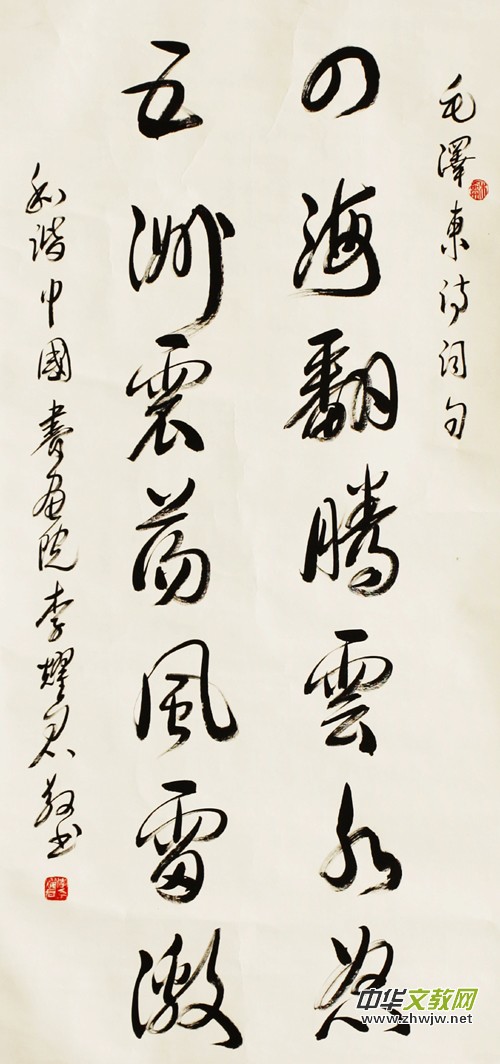 毛澤東诗词句
四海翻腾雲水怒
五洲震荡風雷激
和谐中國書画院李耀君敬书
中华文教网
www.zhwjw.net